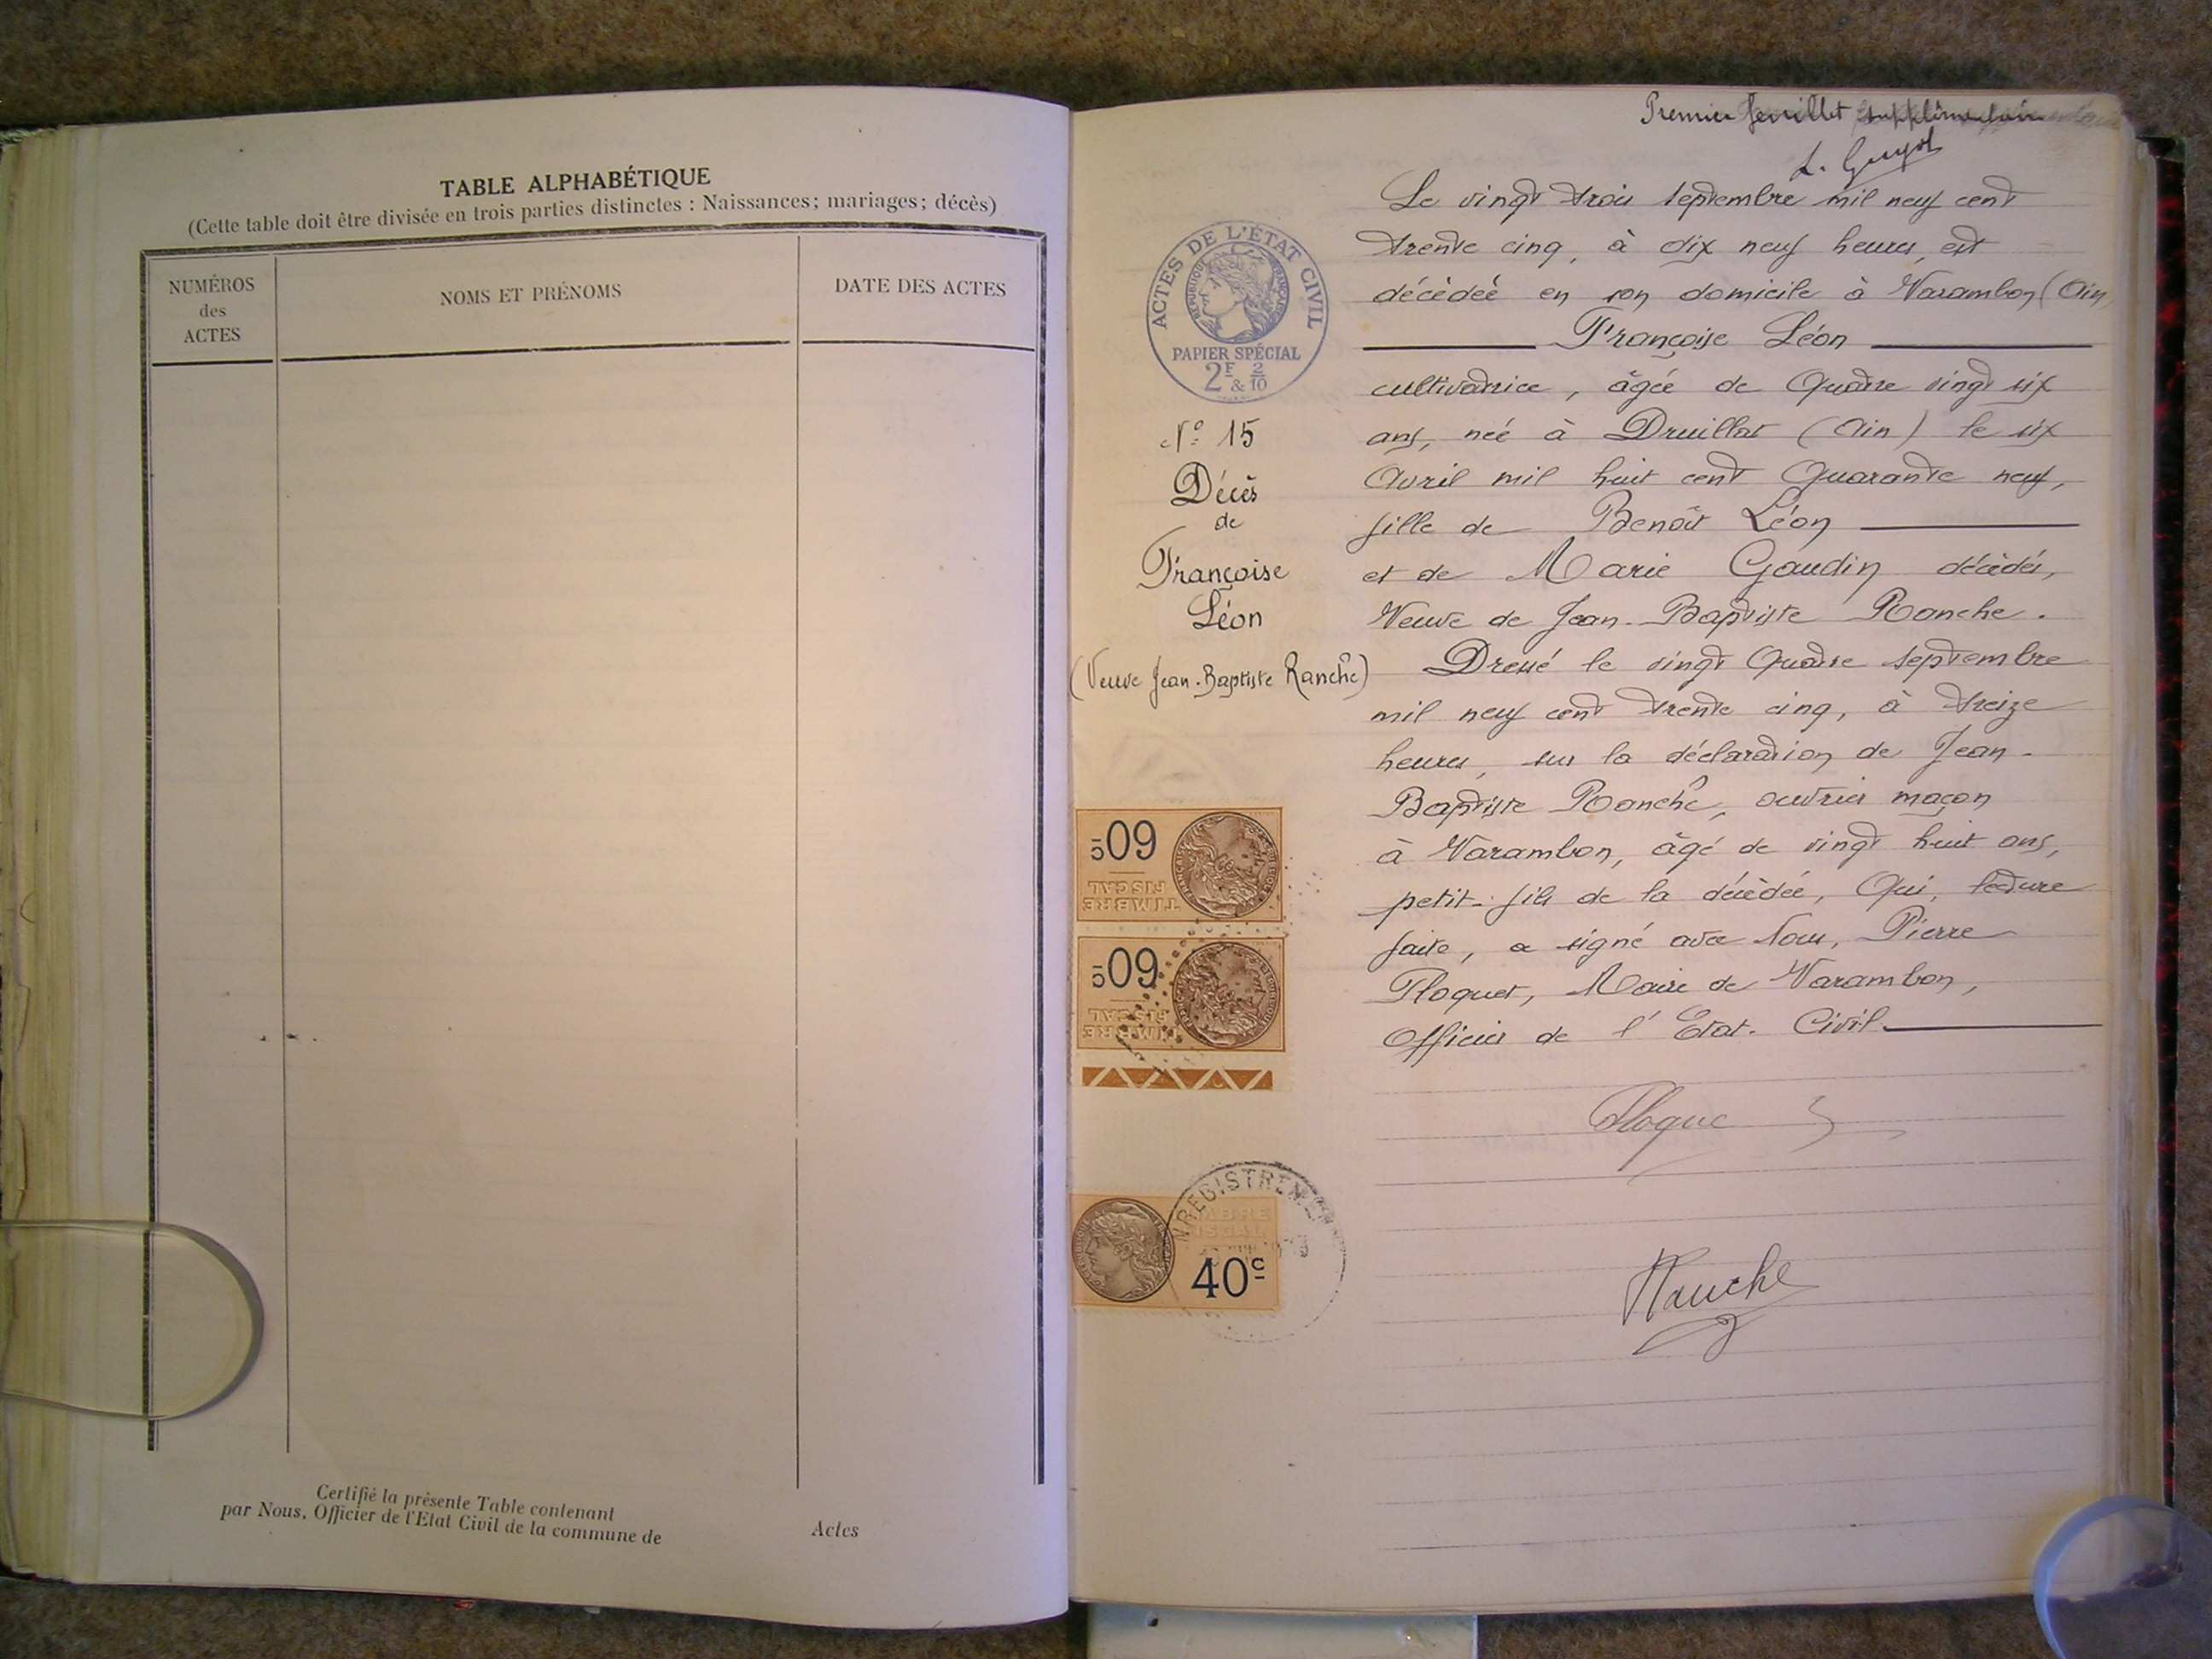 TABLE ALPHABÉTIQUE
(Cette table doit être divisée en trois parties distinctes : Naissances; mariages; décès)
NUMÉROS
des
ACTES
NOMS ET PRÉNOMS
DATE DES ACTES
Certifié la présente Table contenant
Actes
par Nous, Officier de l'Etat Civil de la commune de
Premier feuillet supplémentaire
L. Guyot
ACTES DE L'ÉTAT CIVIL
RÉPUBLIQUE FRANÇAISE
PAPIER SPÉCIAL
2F & 2/10
N° 15
Décès
de
Françoise
Léon
(Veuve Jean-Baptiste Ranche)
Le vingt trois septembre mil neuf cent
trente cinq, à dix neuf heures, est
décédeé en son domicile à Varambon (Ain
Françoise Léon
cultivatrice, âgée de Quatre vingt six
ans, née à Druillat (Ain) le six
Avril mil huit cent Quarante neuf,
fille de Benoît Léon
et de Marie Gaudin décédés,
Veuve de Jean-Baptiste Ranche.
Dressé le vingt Quatre septembre
mil neuf cent trente cinq, à treize
heures, sur la déclaration de Jean-
Baptiste Ranche, ouvrier maçon
à Varambon, âgé de vingt huit ans,
petit-fils de la décédée, Qui, lecture
faite, a signé avec Nous, Pierre
Ploquet, Maire de Varambon,
Officier de l'Etat-Civil.
60c
TIMBRE
FISCAL
60c
TIMBRE
FISCAL
TIMBRE
FISCAL
40c
Ranche